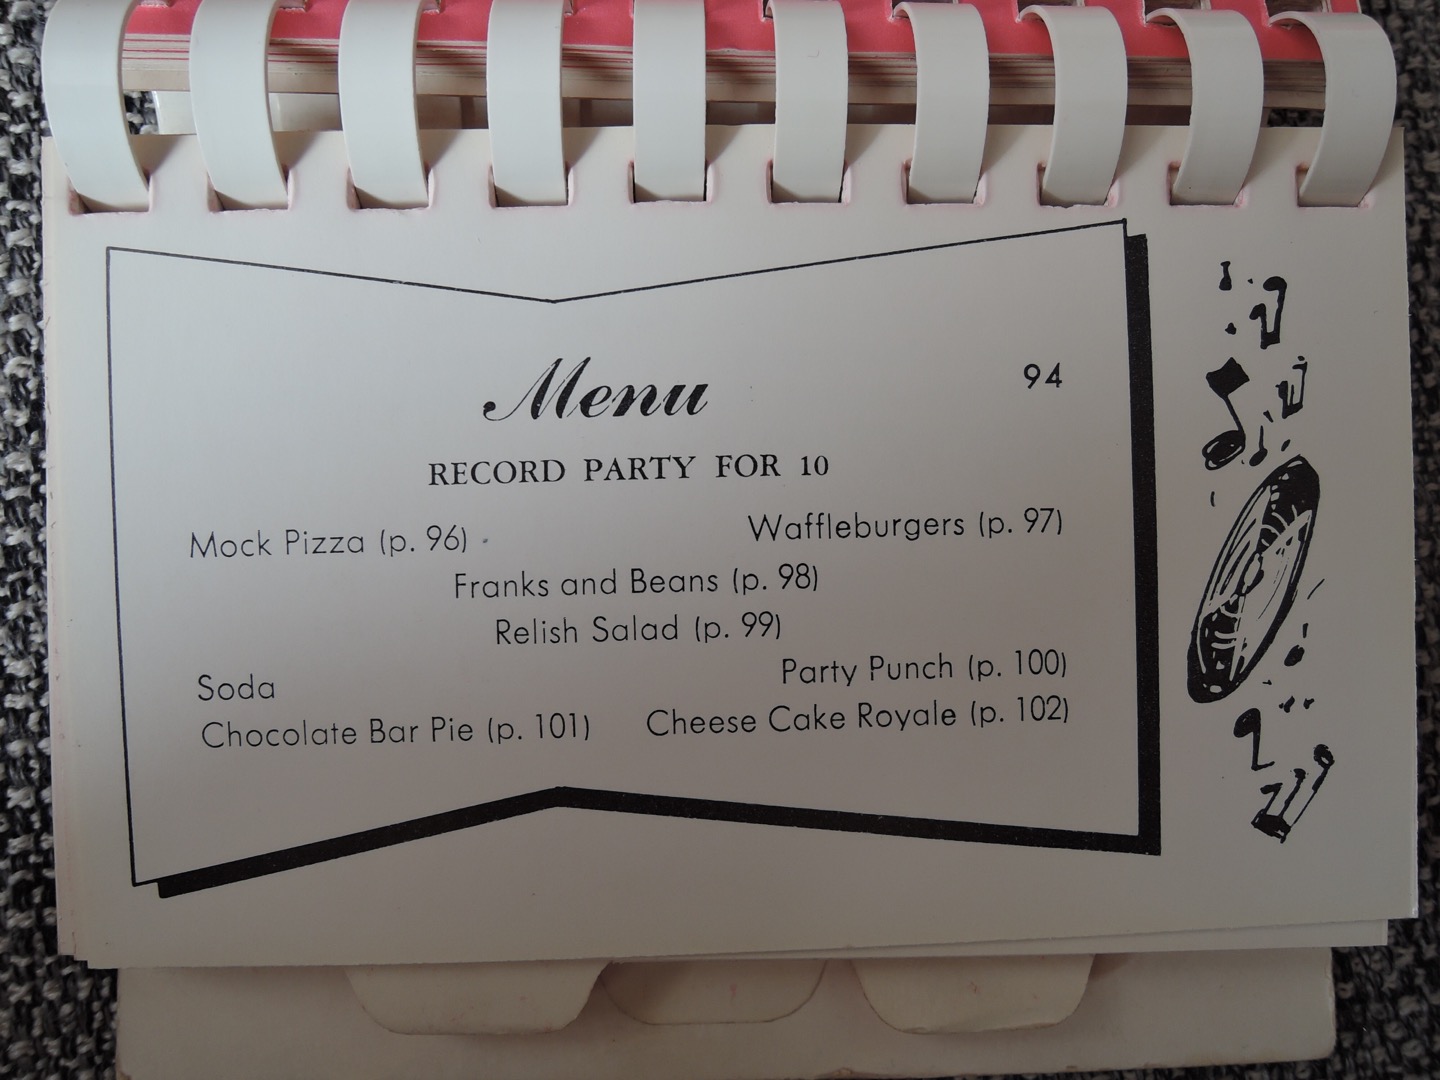 Menu
94
RECORD PARTY FOR 10
Mock Pizza (p. 96)
Waffleburgers (p. 97)
Franks and Beans (p. 98)
Relish Salad (p. 99)
Soda
Party Punch (p. 100)
Chocolate Bar Pie (p. 101)
Cheese Cake Royale (p. 102)